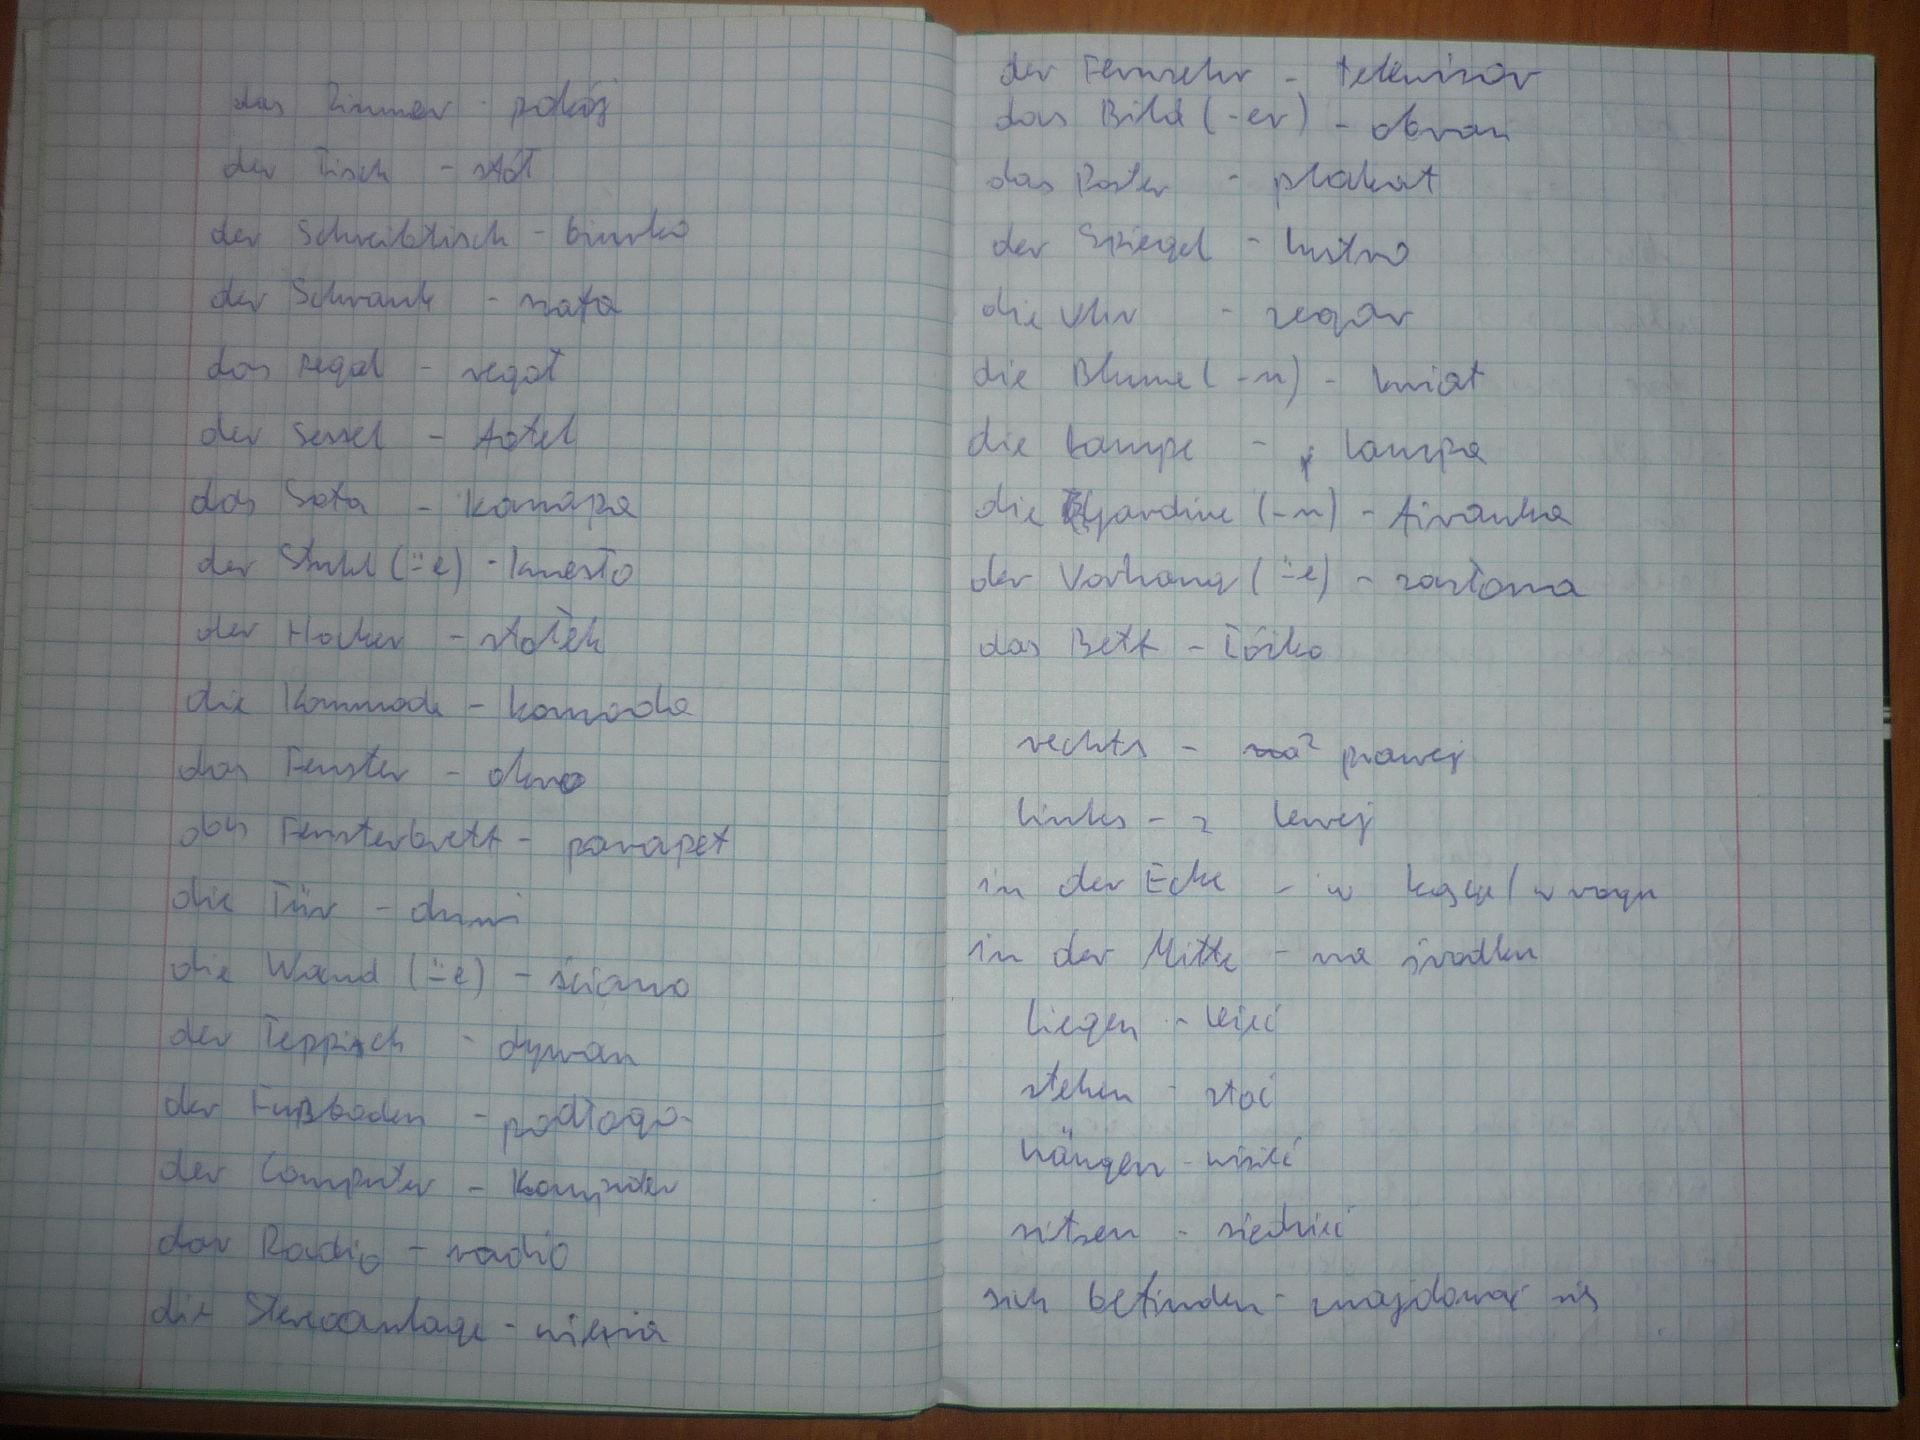 das Zimmer - pokój
der Tisch - stół
der Schreibtisch - biurko
der Schrank - szafa
das Regal - regał
der Sessel - fotel
das Sofa - kanapa
der Stuhl (¨-e) - krzesło
der Hocker - stołek
die Kommode - komoda
das Fenster - okno
das Fensterbrett - parapet
die Tür - drzwi
die Wand (¨-e) - ściana
der Teppich - dywan
der Fußboden - podłoga
der Computer - Komputer
das Radio - radio
die Stereoanlage - wieża
der Fernsehr - telewizor
das Bild (-er) - obraz
das Poster - plakat
der Spiegel - lustro
die Uhr - zegar
die Blume (-n) - kwiat
die Lampe - lampa
die Gardine (-n) - firanka
der Vorhang (¨-e) - zasłona
das Bett - łóżko
rechts - z prawej
links - z lewej
in der Ecke - w kącie / w rogu
in der Mitte - na środku
liegen - leżeć
stehen - stać
hängen - wisieć
sitzen - siedzieć
sich befinden - znajdować się